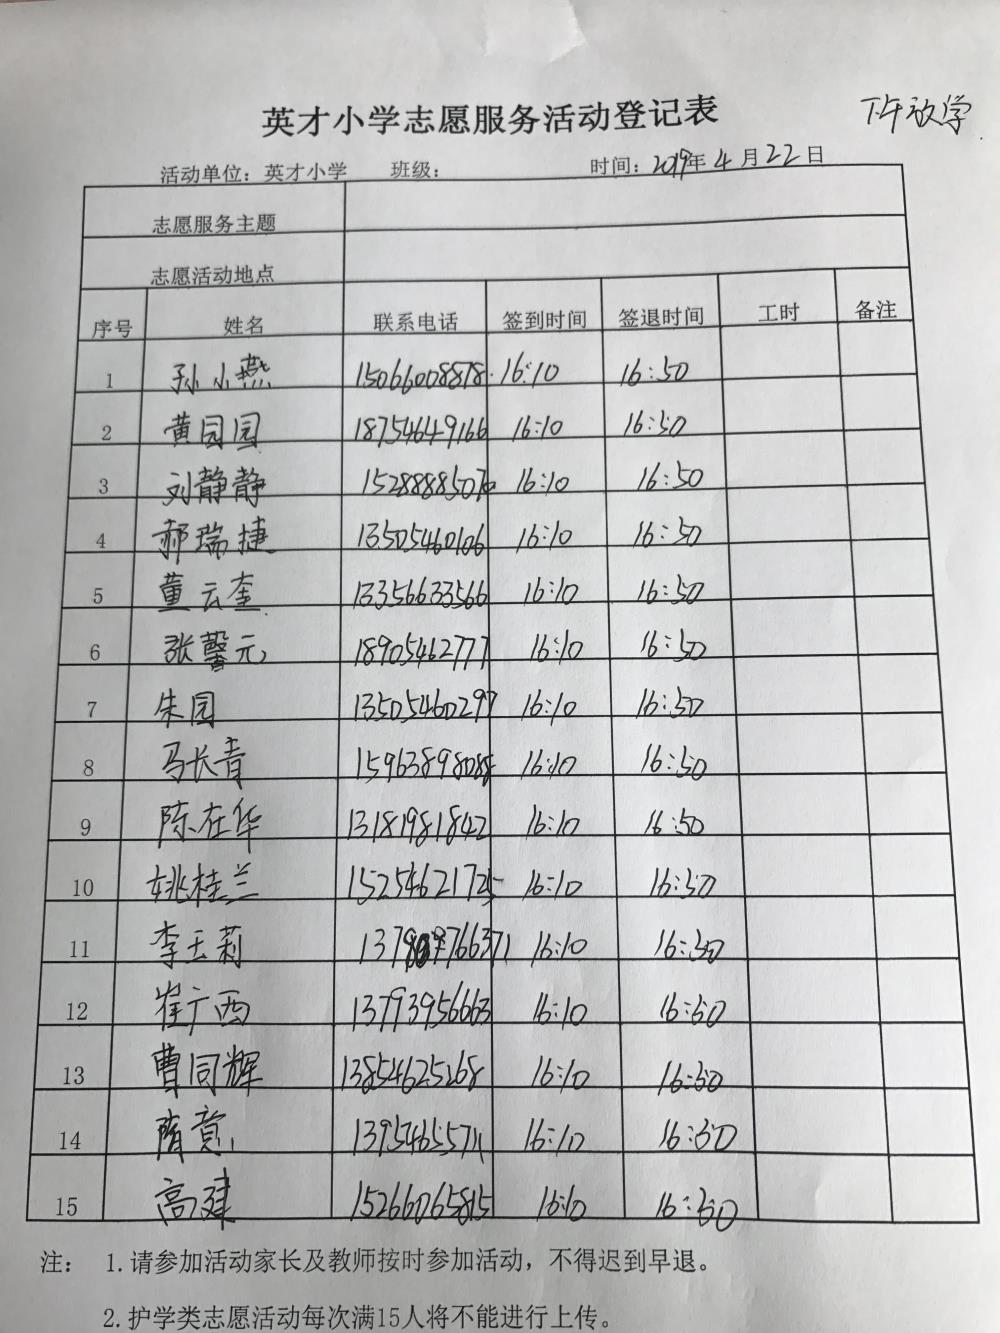 下午放学
英才小学志愿服务活动登记表
活动单位：英才小学 班级： 时间：2019年4月22日
志愿服务主题
志愿活动地点
序号 姓名 联系电话 签到时间 签退时间 工时 备注
1 孙小燕 15066008878 16:10 16:50
2 黄园园 18754649166 16:10 16:50
3 刘静静 16:10 16:50
4 郝瑞捷 13505460106 16:10 16:50
5 董云奎 13356633566 16:10 16:50
6 张馨元 18905462777 16:10 16:50
7 朱园 13505460297 16:10 16:50
8 马长青 16:10 16:50
9 陈在华 13181981842 16:10 16:50
10 姚桂兰 15254621725 16:10 16:50
11 李玉莉 16:10 16:50
12 崔广西 13793956663 16:10 16:50
13 曹同辉 13854625268 16:10 16:50
14 隋意 13954655711 16:10 16:50
15 高建 15266065815 16:10 16:50
注： 1.请参加活动家长及教师按时参加活动，不得迟到早退。
2.护学类志愿活动每次满15人将不能进行上传。